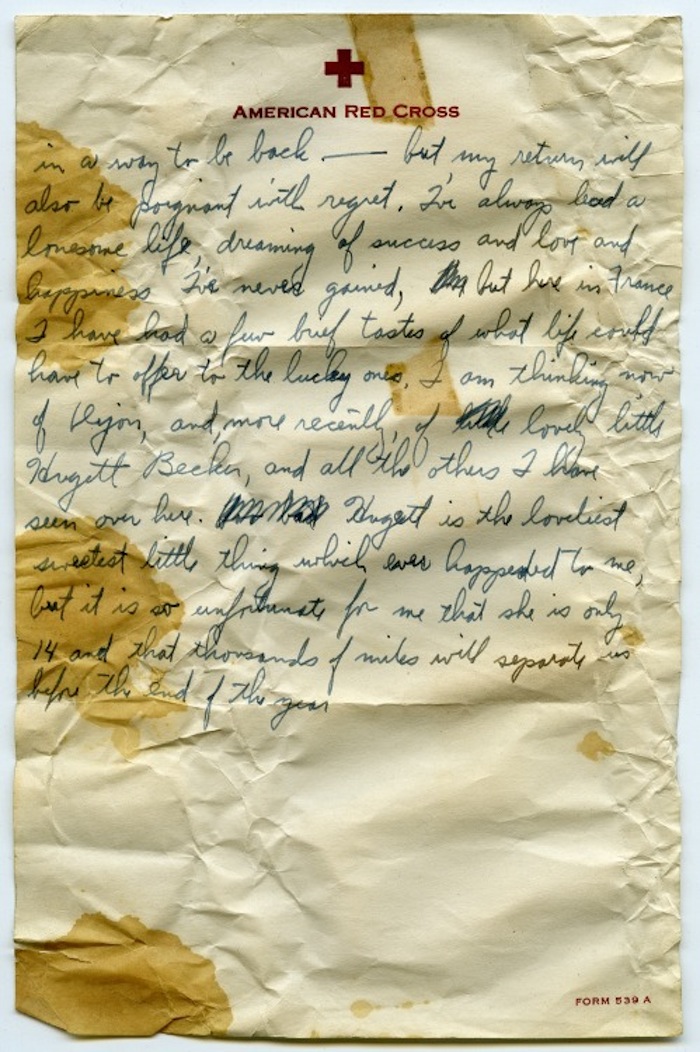 AMERICAN RED CROSS
in a way to be back — but my return will
also be poignant with regret. I've always lead a
lonesome life, dreaming of success and love and
happiness I've never gained, but here in France
I have had a few brief tastes of what life could
have to offer to the lucky ones. I am thinking now
of Dijon, and, more recently, of lovely little
Hugett Becker, and all the others I have
seen over here. Hugett is the loveliest
sweetest little thing which ever happened to me,
but it is so unfortunate for me that she is only
14 and that thousands of miles will separate us
before the end of the year
FORM 539 A